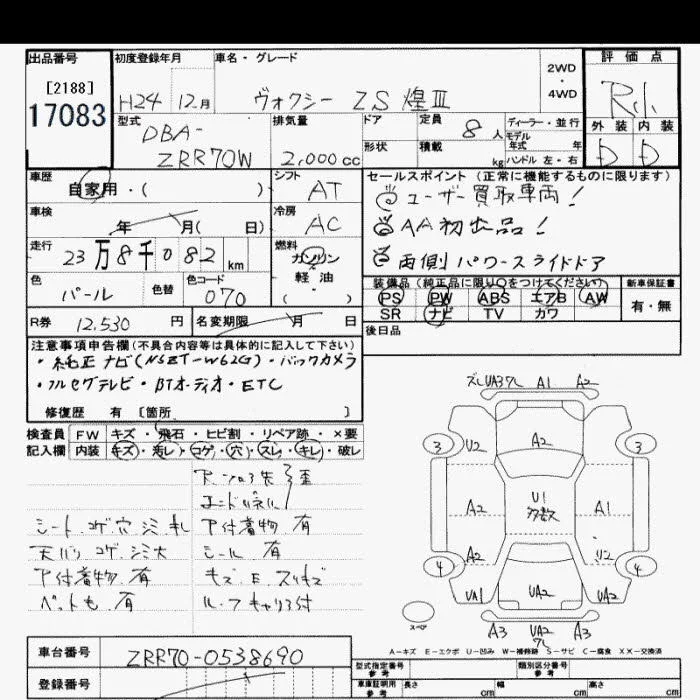 出品番号
[2188]
17083
初度登録年月
H24 12月
車名・グレード
ヴォクシー ZS 煌Ⅲ
2WD
・
4WD
評価点
R小
外装 内装
D D
型式
DBA-
ZRR70W
排気量
2,000 cc
ドア
形状
定員
8人
積載
kg
ディーラー・並行
モデル
年式 年
ハンドル 左・右
車歴
自家用・( )
シフト
AT
車検
年 月( 日)
冷房
AC
走行
23万8千082 km
燃料
ガソリン
軽・油
( )
色
パール
色替
色コード
070
R券
12,530 円
名変期限 月 日
セールスポイント (正常に機能するものに限ります)
ユーザー買取車両!
AA初出品!
両側パワースライドドア
装備品(純正品に限り○をつけてください)
PS PW ABS エアB AW
SR ナビ TV カワ
新車保証書
有・無
後日品
注意事項申告欄(不具合内容等は具体的に記入して下さい)
・純正ナビ(NSZT-W62G)・バックカメラ
・フルセグテレビ・BTオーディオ・ETC
修復歴 有 [箇所 ]
検査員
記入欄
FW キズ・飛石・ヒビ割・リペア跡・×要
内装 キズ・汚レ・コゲ・穴・スレ・キレ・破レ
シート コゲ穴 シミ
天バリ コゲ シミ大
下付着物 有
ペット毛 有
下付着物 有
シール 有
ルーフキャリア付
ズレ UA3 ワレ A1 A2
3 U2 A2 3
A2 U1 多数 A1
A2 U2
4 UA1 UA2 UA2 4
スペア
A3 UA2 ワレ A3
A-キズ E-エクボ U-凹み W-補修跡 S-サビ C-腐食 XX-交換済
車台番号
ZRR70-0538690
登録番号
型式指定番号
参考
類別区分番号
参考
車庫証明用
参考
長さ cm 幅 cm 高さ cm